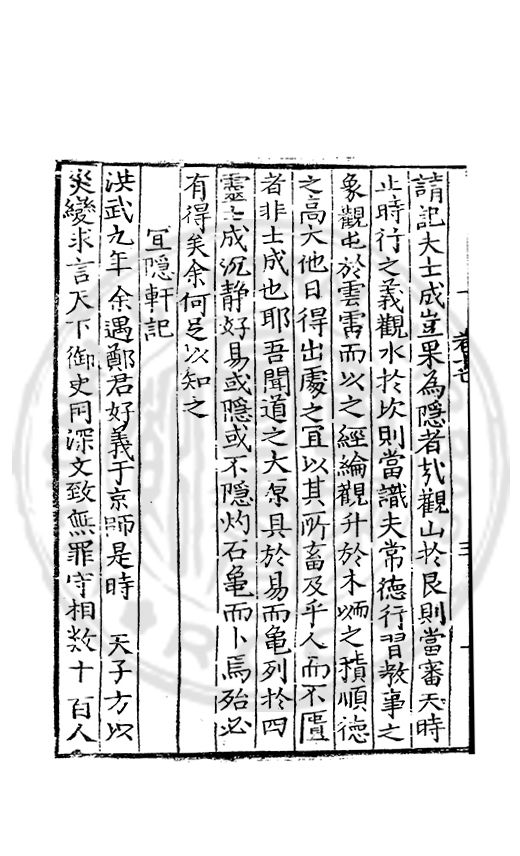 請記夫士成豈果為隱者㢤觀山於艮則當審夫時
止時行之義觀水於坎則當識夫常德行習教事之
象觀屯於雲雷而以之經綸觀升於木而以之積順德
之高大他日得出處之冝以其所畜及乎人而不匱
者非士成也耶吾聞道之大原具於易而亀列於四
靈士成沉静好易或隱或不隱灼石亀而卜焉殆必
有得矣余何足以知之
冝隱軒記
洪武九年余遇鄭君好義于京師是時 天子方以
灾變求言天下御史同深文致無罪守相数十百人